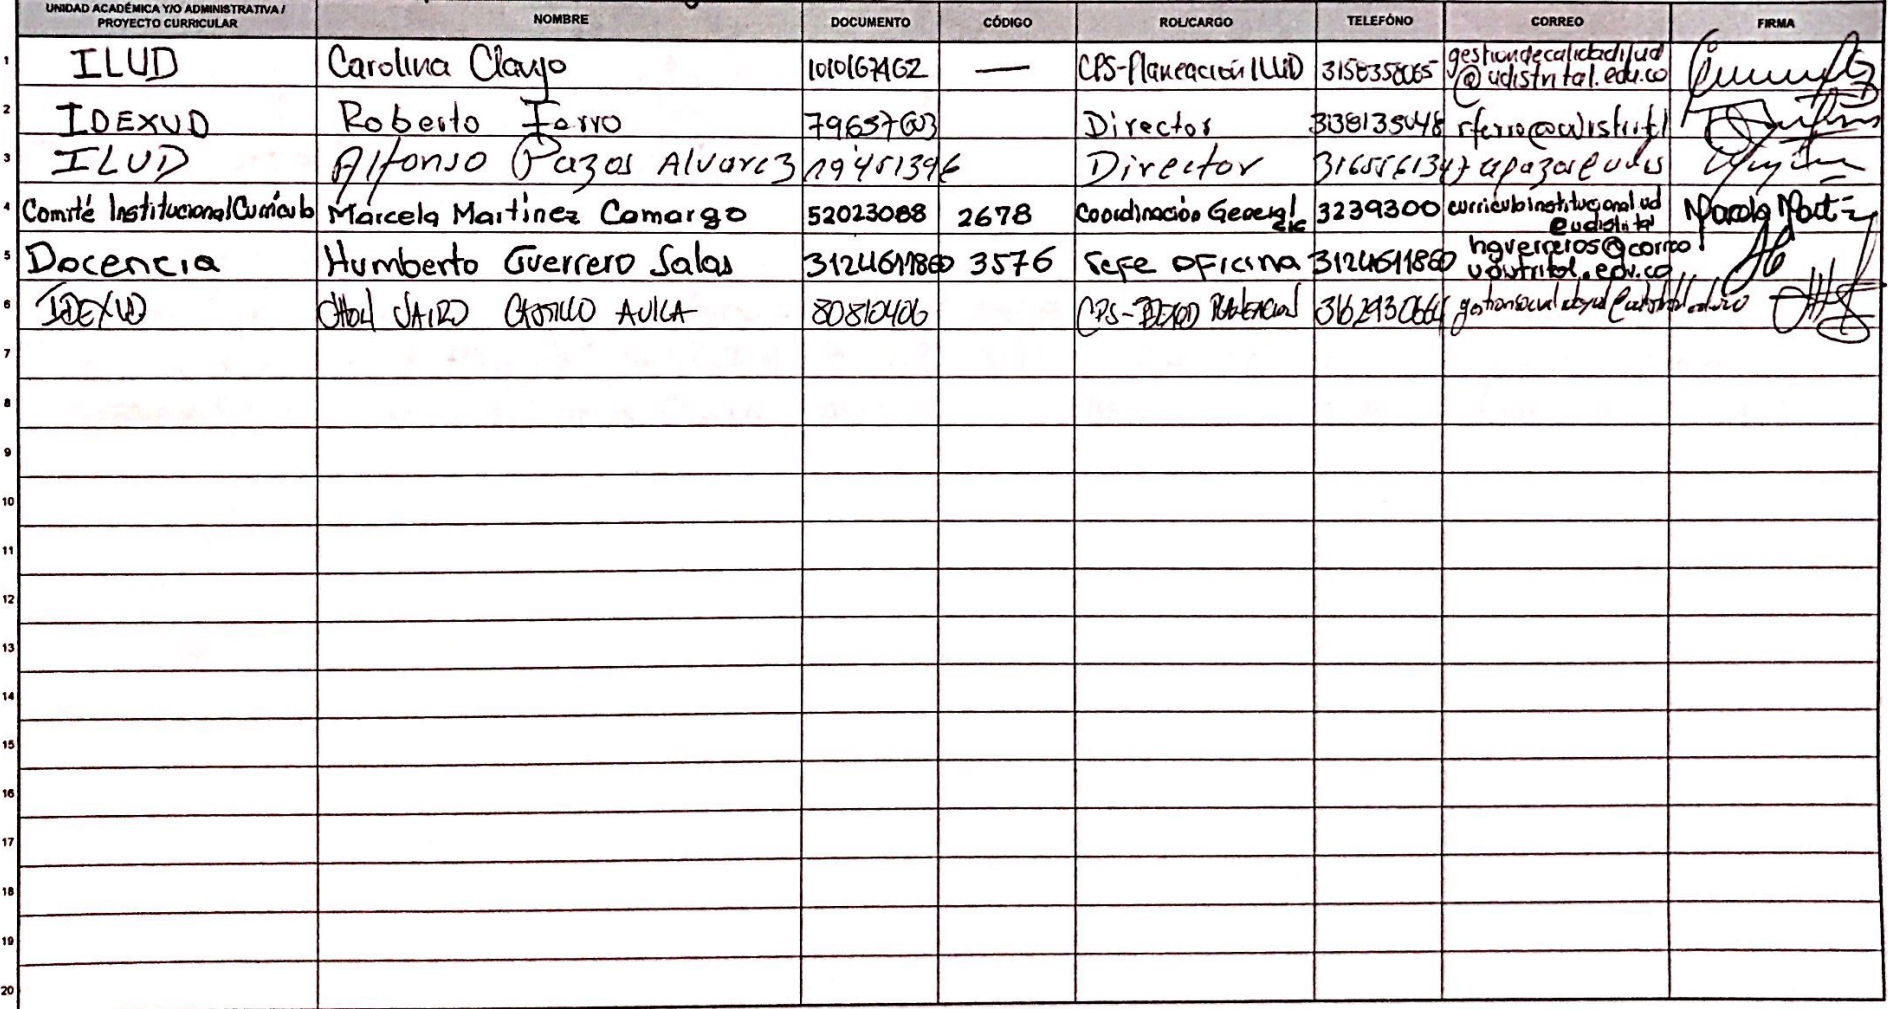 UNIDAD ACADÉMICA Y/O ADMINISTRATIVA / PROYECTO CURRICULAR NOMBRE DOCUMENTO CÓDIGO ROL/CARGO TELEFÓNO CORREO FIRMA
1 ILUD Carolina Clavijo 1010167462 — CPS-Planeación ILUD 3158358065 gestiondecalidadilud
@udistrital.edu.co
2 IDEXUD Roberto Ferro 79657603 Director 3138135048
3 ILUD Alfonso Pazos Alvarez 19451396 Director 3165561347 apazos@udis
4 Comité Institucional Curriculo Marcela Martinez Camargo 52023088 2678 Coordinación General 3239300 curriculoinstitucional ud
@udistrital
5 Docencia Humberto Guerrero Salas 3124611860 3576 Jefe Oficina 3124611860 hguerreros@correo
udistrital.edu.co
6 IDEXUD JAIRO CASTILLO AVILA 80810406 CPS-IDEXUD
7
8
9
10
11
12
13
14
15
16
17
18
19
20